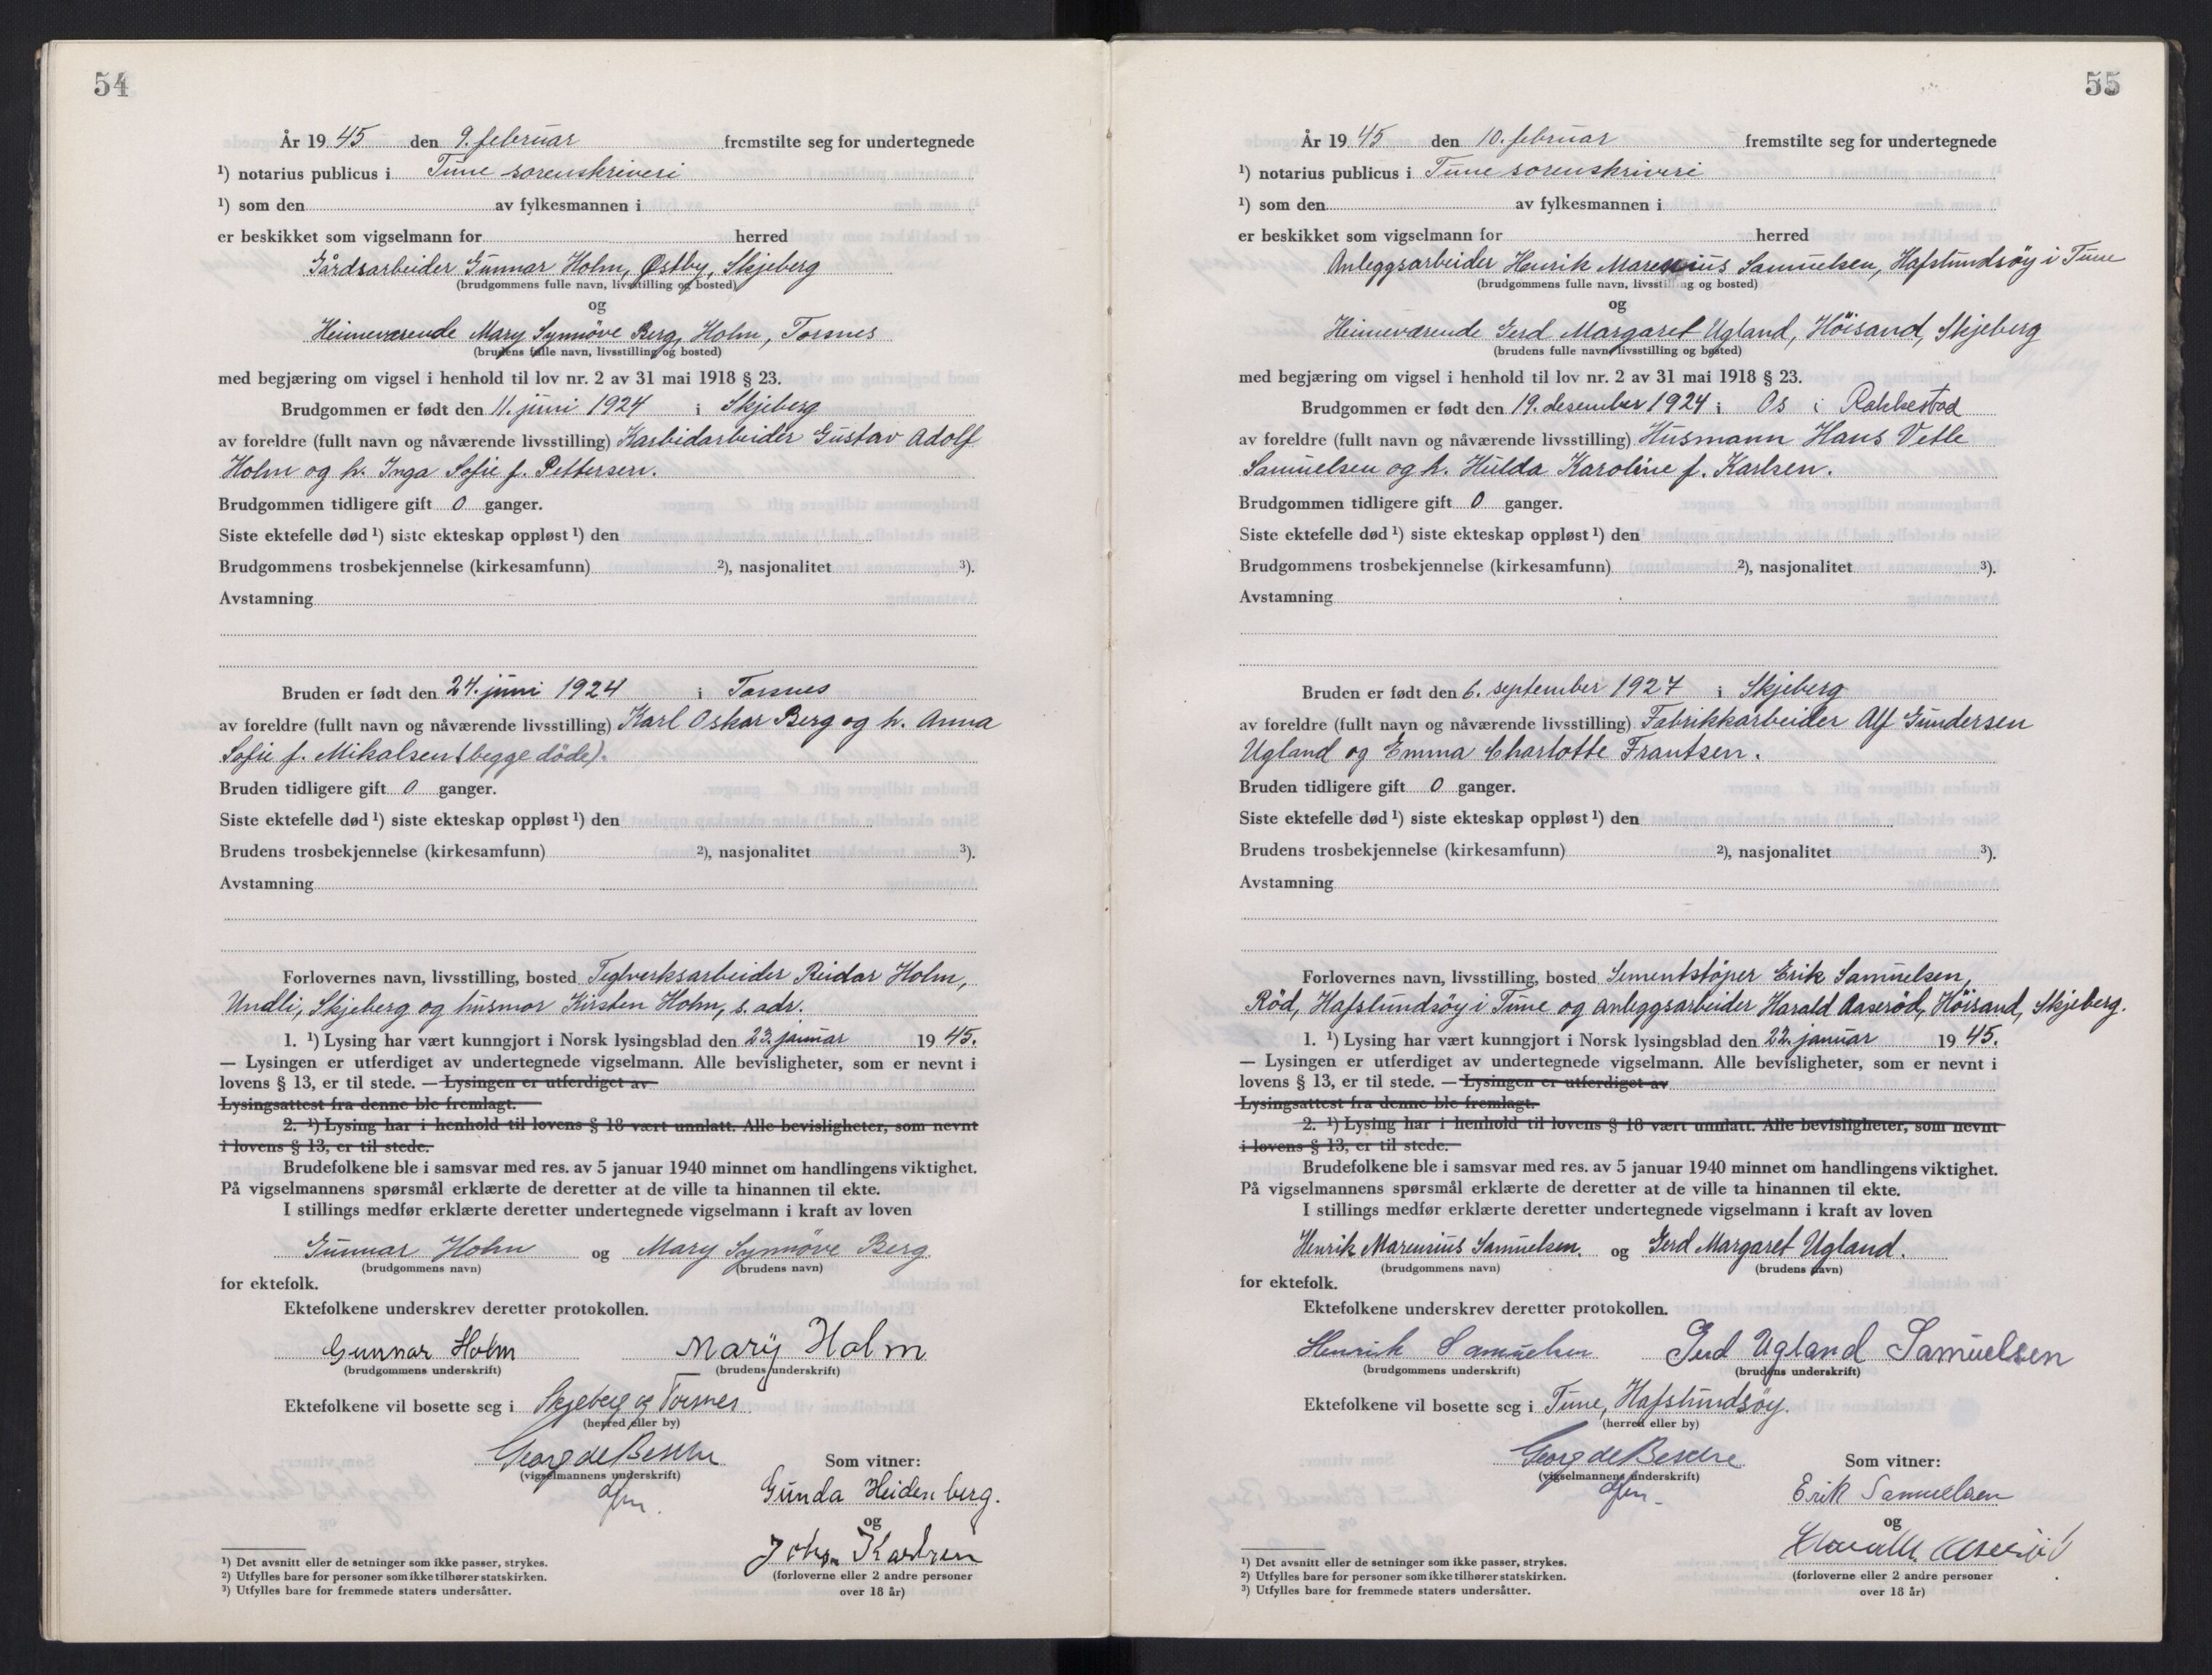 54
År 1945 den 9. februar fremstilte seg for undertegnede
¹) notarius publicus i Tune sorenskriveri
¹) som den av fylkesmannen i
er beskikket som vigselmann for herred
Gårdsarbeider Gunnar Holm, Østby, Skjeberg
(brudgommens fulle navn, livsstilling og bosted)
og
Heimeværende Mary Synnöve Berg, Holm, Torsnes
(brudens fulle navn, livsstilling og bosted)
med begjæring om vigsel i henhold til lov nr. 2 av 31 mai 1918 § 23.
Brudgommen er født den 11. juni 1924 i Skjeberg
av foreldre (fullt navn og nåværende livsstilling) Karbidarbeider Gustav Adolf
Holm og h. Inga Sofie f. Pettersen.
Brudgommen tidligere gift 0 ganger.
Siste ektefelle død ¹) siste ekteskap oppløst ¹) den
Brudgommens trosbekjennelse (kirkesamfunn) ²), nasjonalitet ³).
Avstamning
Bruden er født den 24. juni 1924 i Torsnes
av foreldre (fullt navn og nåværende livsstilling) Karl Oskar Berg og h. Anna
Sofie f. Mikalsen (begge döde).
Bruden tidligere gift 0 ganger.
Siste ektefelle død ¹) siste ekteskap oppløst ¹) den
Brudens trosbekjennelse (kirkesamfunn) ²), nasjonalitet ³).
Avstamning
Forlovernes navn, livsstilling, bosted Teglverksarbeider Reidar Holm,
Undli, Skjeberg og husmor Kirsten Holm, s. adr.
1. ¹) Lysing har vært kunngjort i Norsk lysingsblad den 23. januar 1945.
— Lysingen er utferdiget av undertegnede vigselmann. Alle bevisligheter, som er nevnt i
lovens § 13, er til stede. — Lysingen er utferdiget av
Lysingsattest fra denne ble fremlagt.
2. ¹) Lysing har i henhold til lovens § 18 vært unnlatt. Alle bevisligheter, som nevnt
i lovens § 13, er til stede.
Brudefolkene ble i samsvar med res. av 5 januar 1940 minnet om handlingens viktighet.
På vigselmannens spørsmål erklærte de deretter at de ville ta hinannen til ekte.
I stillings medfør erklærte deretter undertegnede vigselmann i kraft av loven
Gunnar Holm og Mary Synnöve Berg
(brudgommens navn) (brudens navn)
for ektefolk.
Ektefolkene underskrev deretter protokollen.
Gunnar Holm Mary Holm
(brudgommens underskrift) (brudens underskrift)
Ektefolkene vil bosette seg i Skjeberg og Torsnes
(herred eller by)
Georg de Besche
(vigselmannens underskrift)
Som vitner:
Gunda Heidenberg.
og
John Karlsen
(forloverne eller 2 andre personer
over 18 år)
¹) Det avsnitt eller de setninger som ikke passer, strykes.
²) Utfylles bare for personer som ikke tilhører statskirken.
³) Utfylles bare for fremmede staters undersåtter.
55
År 1945 den 10. februar fremstilte seg for undertegnede
¹) notarius publicus i Tune sorenskriveri
¹) som den av fylkesmannen i
er beskikket som vigselmann for herred
Anleggsarbeider Henrik Marensius Samuelsen, Hafslundsöy i Tune
(brudgommens fulle navn, livsstilling og bosted)
og
Heimeværende Gerd Margaret Ugland, Höisand, Skjeberg
(brudens fulle navn, livsstilling og bosted)
med begjæring om vigsel i henhold til lov nr. 2 av 31 mai 1918 § 23.
Brudgommen er født den 19. desember 1924 i Os i Rakkestad
av foreldre (fullt navn og nåværende livsstilling) Husmann Hans Vetle
Samuelsen og h. Hulda Karoline f. Karlsen.
Brudgommen tidligere gift 0 ganger.
Siste ektefelle død ¹) siste ekteskap oppløst ¹) den
Brudgommens trosbekjennelse (kirkesamfunn) ²), nasjonalitet ³).
Avstamning
Bruden er født den 6. september 1927 i Skjeberg
av foreldre (fullt navn og nåværende livsstilling) Fabrikkarbeider Alf Gundersen
Ugland og Emma Charlotte Frantsen.
Bruden tidligere gift 0 ganger.
Siste ektefelle død ¹) siste ekteskap oppløst ¹) den
Brudens trosbekjennelse (kirkesamfunn) ²), nasjonalitet ³).
Avstamning
Forlovernes navn, livsstilling, bosted Sementstöper Erik Samuelsen,
Röd, Hafslundsöy i Tune og anleggsarbeider Harald Aaseröd, Höisand, Skjeberg.
1. ¹) Lysing har vært kunngjort i Norsk lysingsblad den 22. januar 1945.
— Lysingen er utferdiget av undertegnede vigselmann. Alle bevisligheter, som er nevnt i
lovens § 13, er til stede. — Lysingen er utferdiget av
Lysingsattest fra denne ble fremlagt.
2. ¹) Lysing har i henhold til lovens § 18 vært unnlatt. Alle bevisligheter, som nevnt
i lovens § 13, er til stede.
Brudefolkene ble i samsvar med res. av 5 januar 1940 minnet om handlingens viktighet.
På vigselmannens spørsmål erklærte de deretter at de ville ta hinannen til ekte.
I stillings medfør erklærte deretter undertegnede vigselmann i kraft av loven
Henrik Marensius Samuelsen. og Gerd Margaret Ugland.
(brudgommens navn) (brudens navn)
for ektefolk.
Ektefolkene underskrev deretter protokollen.
Henrik Samuelsen Gerd Ugland Samuelsen
(brudgommens underskrift) (brudens underskrift)
Ektefolkene vil bosette seg i Tune, Hafslundsöy.
(herred eller by)
Georg de Besche
(vigselmannens underskrift)
Som vitner:
Erik Samuelsen
og
Harald Aaseröd
(forloverne eller 2 andre personer
over 18 år)
¹) Det avsnitt eller de setninger som ikke passer, strykes.
²) Utfylles bare for personer som ikke tilhører statskirken.
³) Utfylles bare for fremmede staters undersåtter.